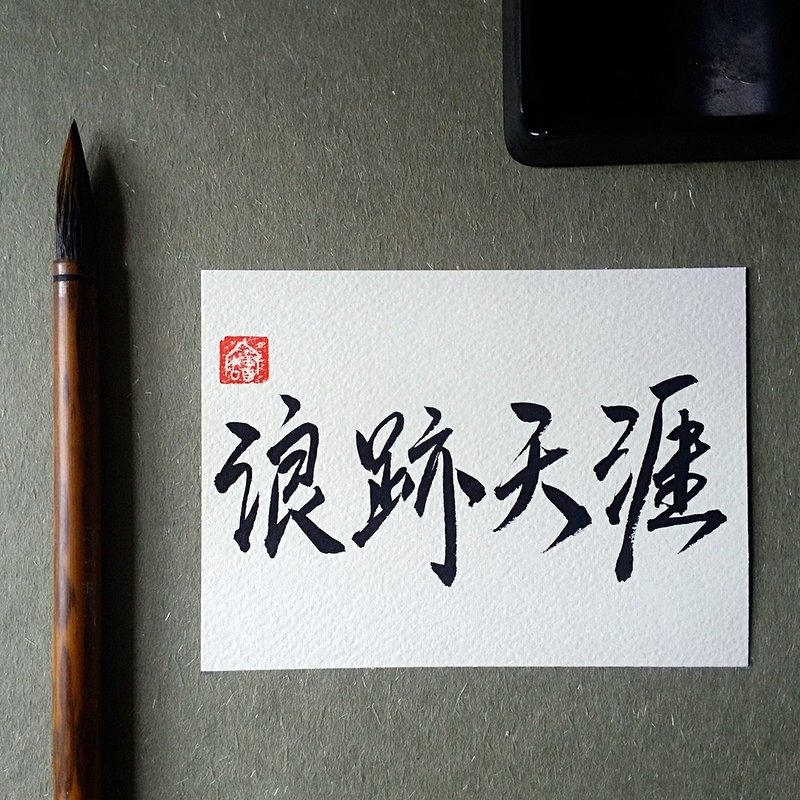 浪跡天涯